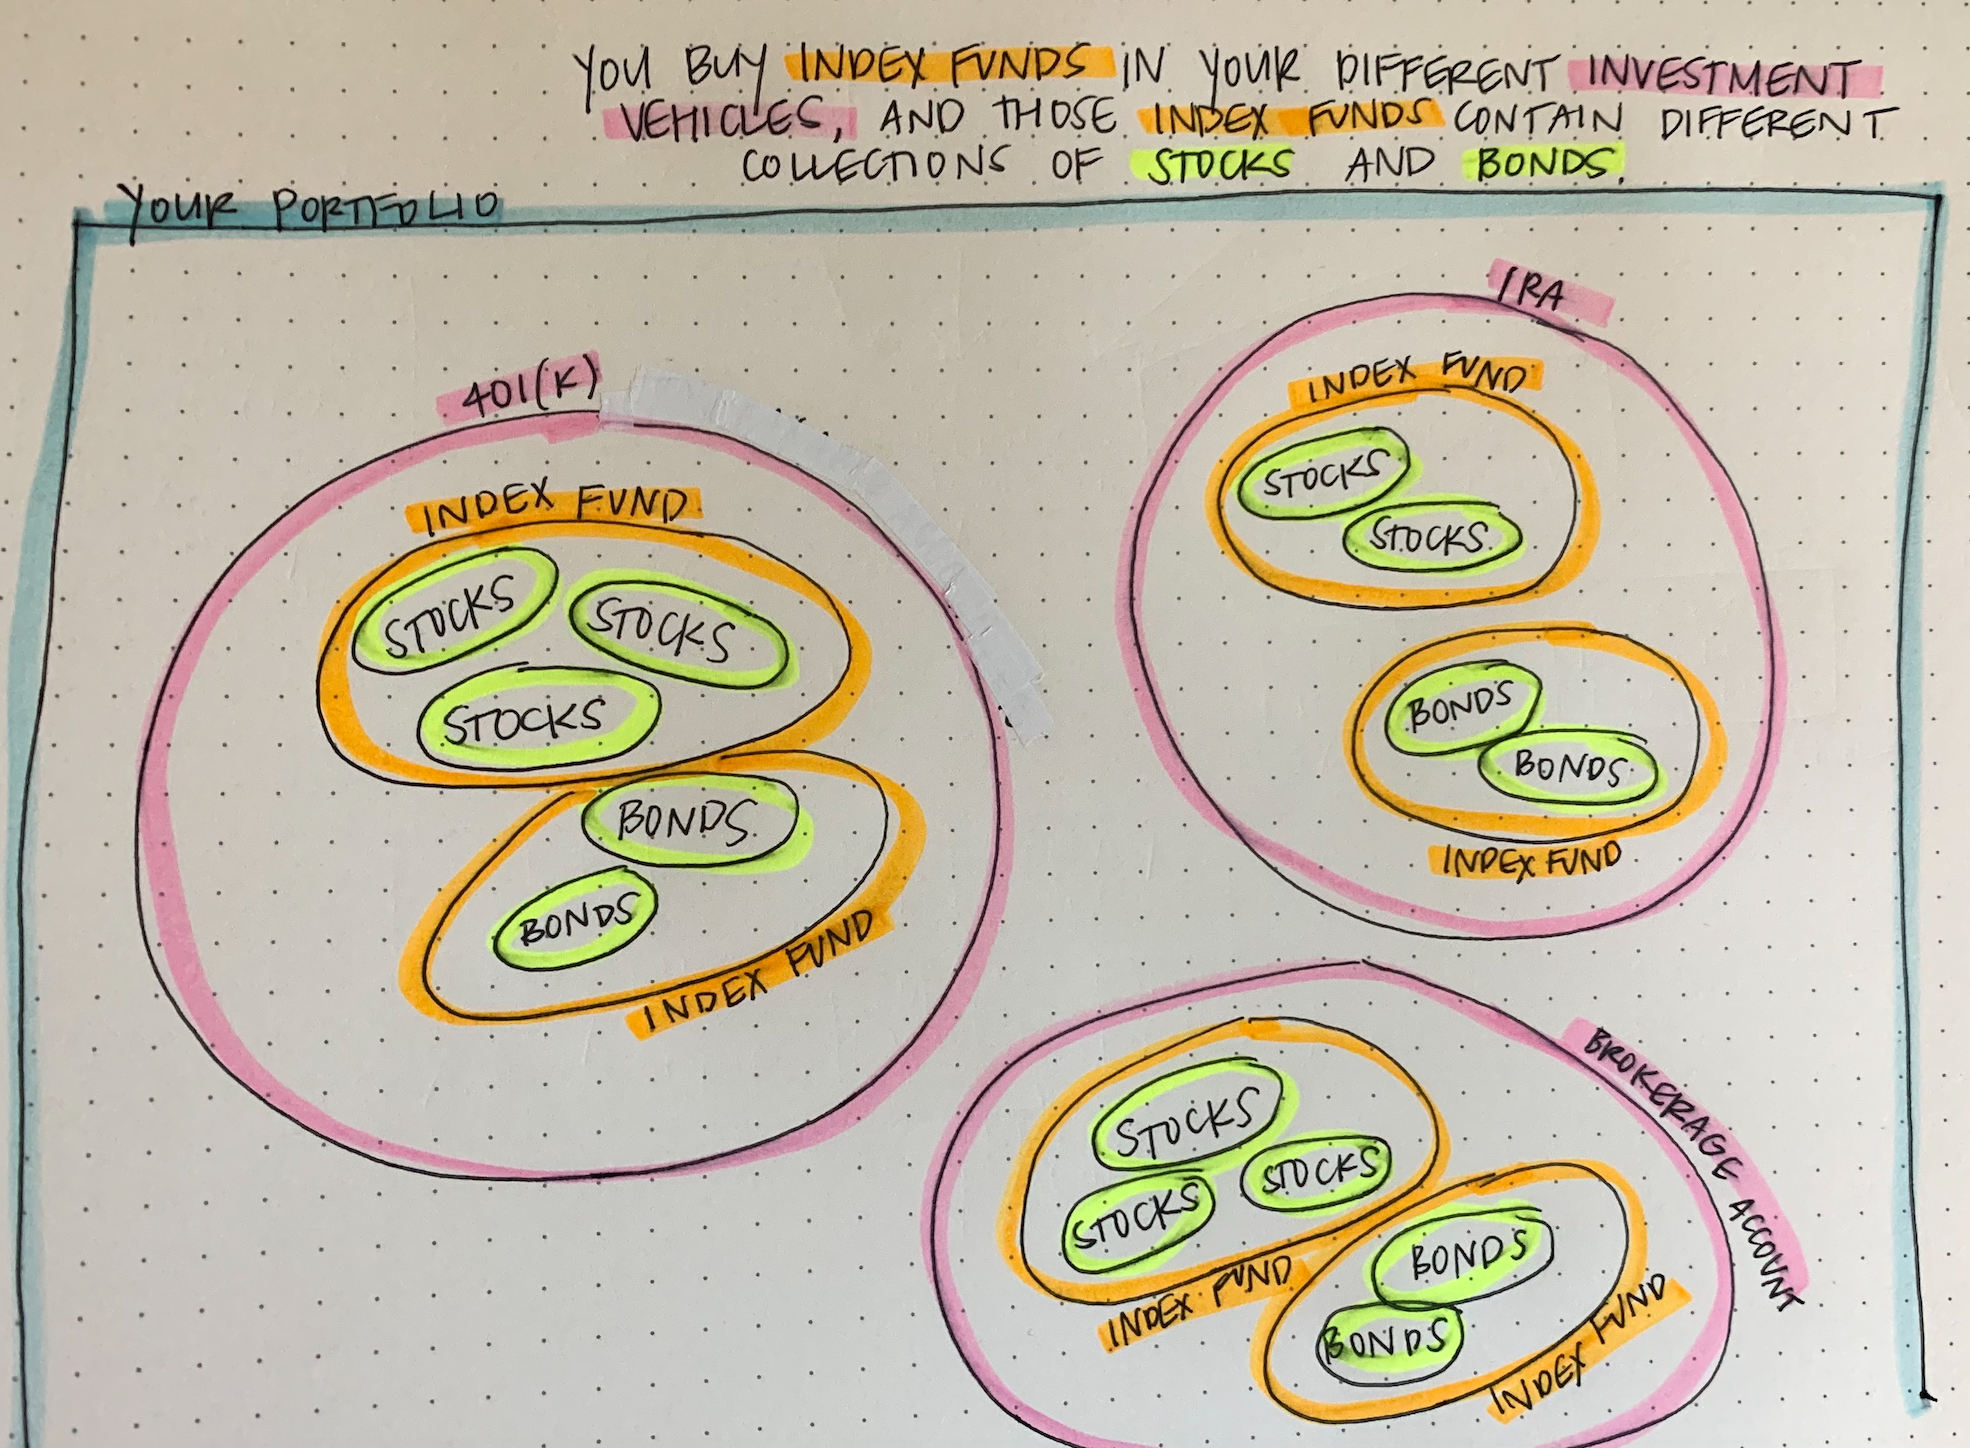 YOU BUY INDEX FUNDS IN YOUR DIFFERENT INVESTMENT
VEHICLES, AND THOSE INDEX FUNDS CONTAIN DIFFERENT
COLLECTIONS OF STOCKS AND BONDS.
YOUR PORTFOLIO
401(K)
INDEX FUND
STOCKS
STOCKS
STOCKS
BONDS
BONDS
INDEX FUND
IRA
INDEX FUND
STOCKS
STOCKS
BONDS
BONDS
INDEX FUND
BROKERAGE ACCOUNT
STOCKS
STOCKS
STOCKS
INDEX FUND
BONDS
BONDS
INDEX FUND